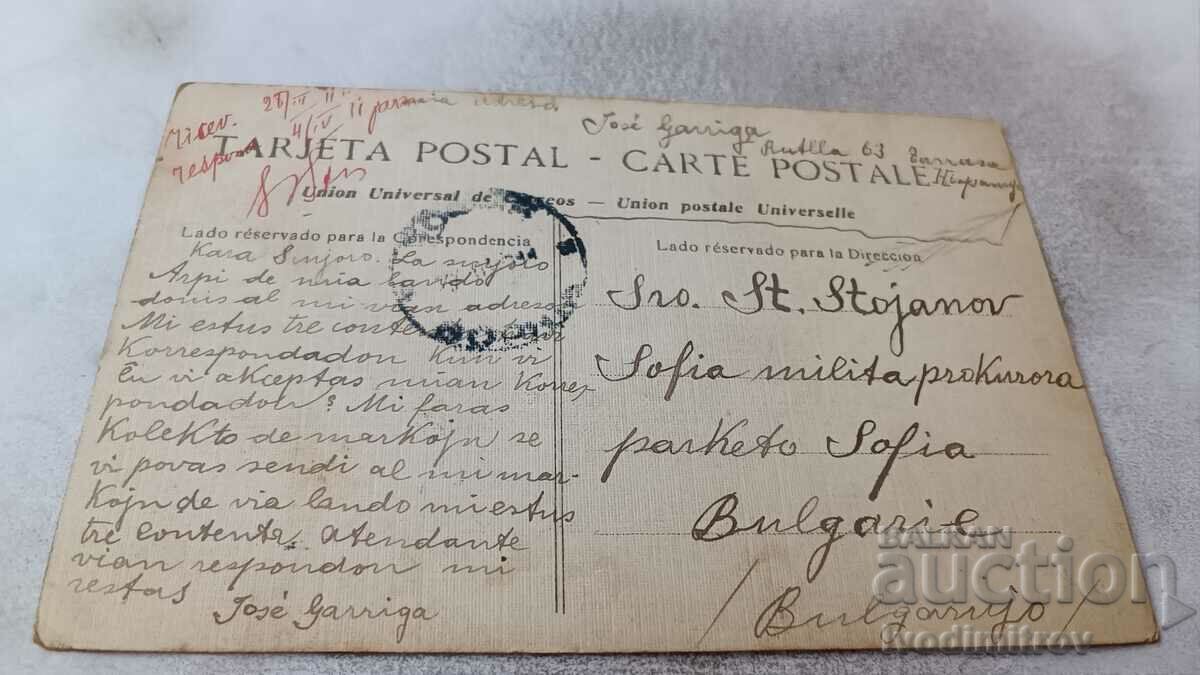 ricev. 28/III 11
respond 4/IV 11
José Garriga
Rutlla 63 Tarrasa
Hispanujo
TARJETA POSTAL - CARTE POSTALE
Union Universal de Correos — Union postale Universelle
Lado réservado para la Correspondencia
Lado réservado para la Direccion
Kara Sinjoro. La sinjoro
Arpi de mia lando
donis al mi vian adreson
Mi estus tre contenta
Korrespondadon kun vi
Ĉu vi akceptas mian Korres
pondadon? Mi faras
Kolekto de markojn se
vi povas sendi al mi mar-
kojn de via lando mi estus
tre contenta, atendante
vian respondon mi
restas
José Garriga
Sro. St. Stojanov
Sofia milita proKurora
parKeto Sofia
Bulgarie
/Bulgarujo/
BALKAN
auction
ivodimitrov